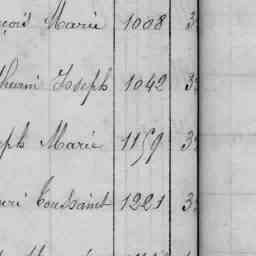 çois Marie 1008 3
thurin Joseph 1042 3
eph Marie 1159 3
uri Toussaint 1221 3